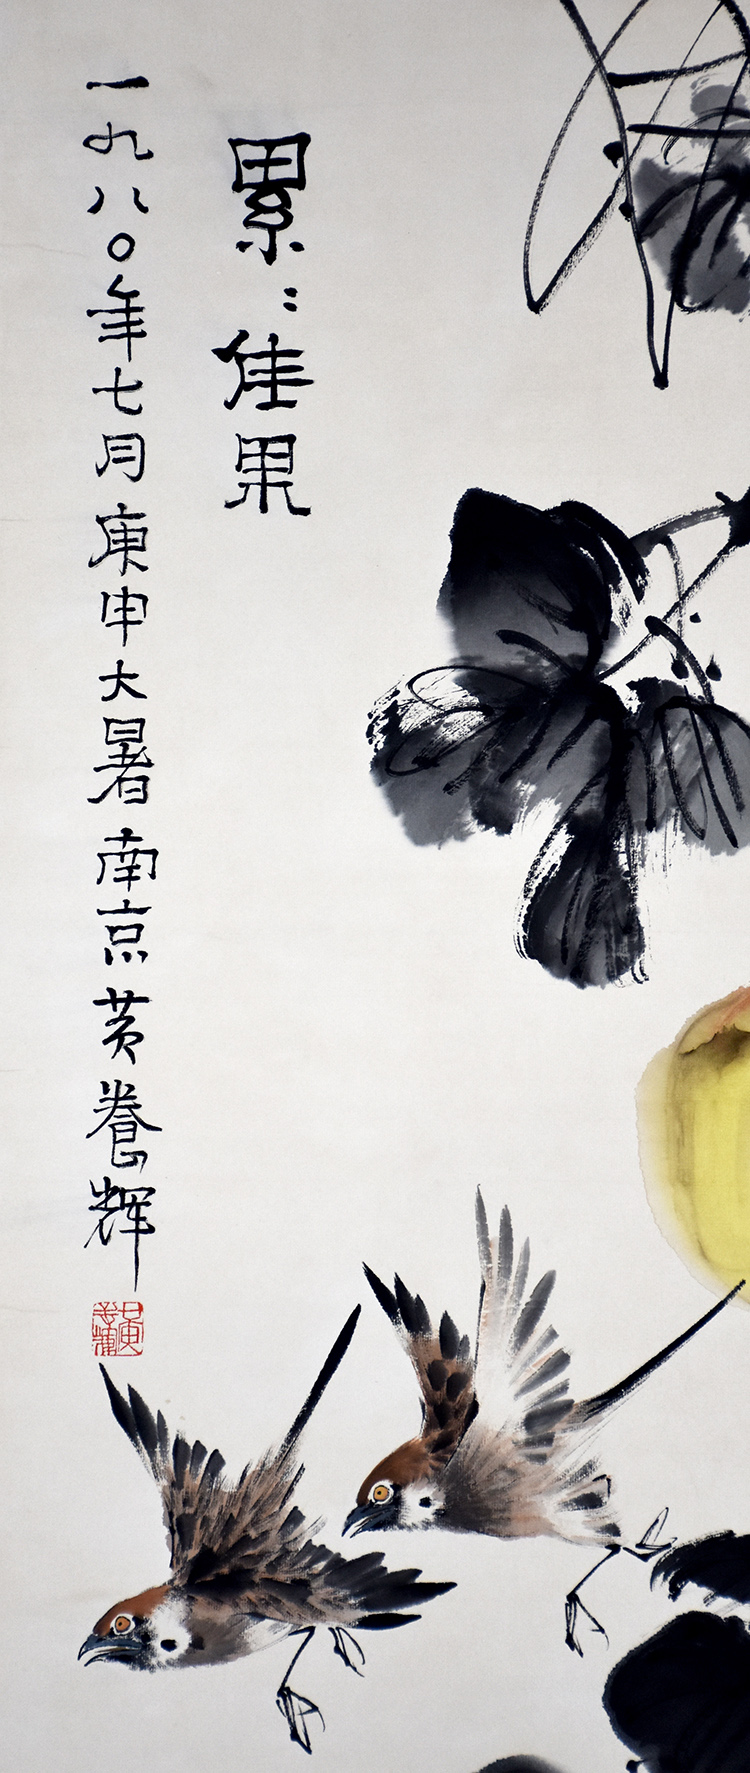 累〻佳果
一九八〇年七月庚申大暑南京黄養辉